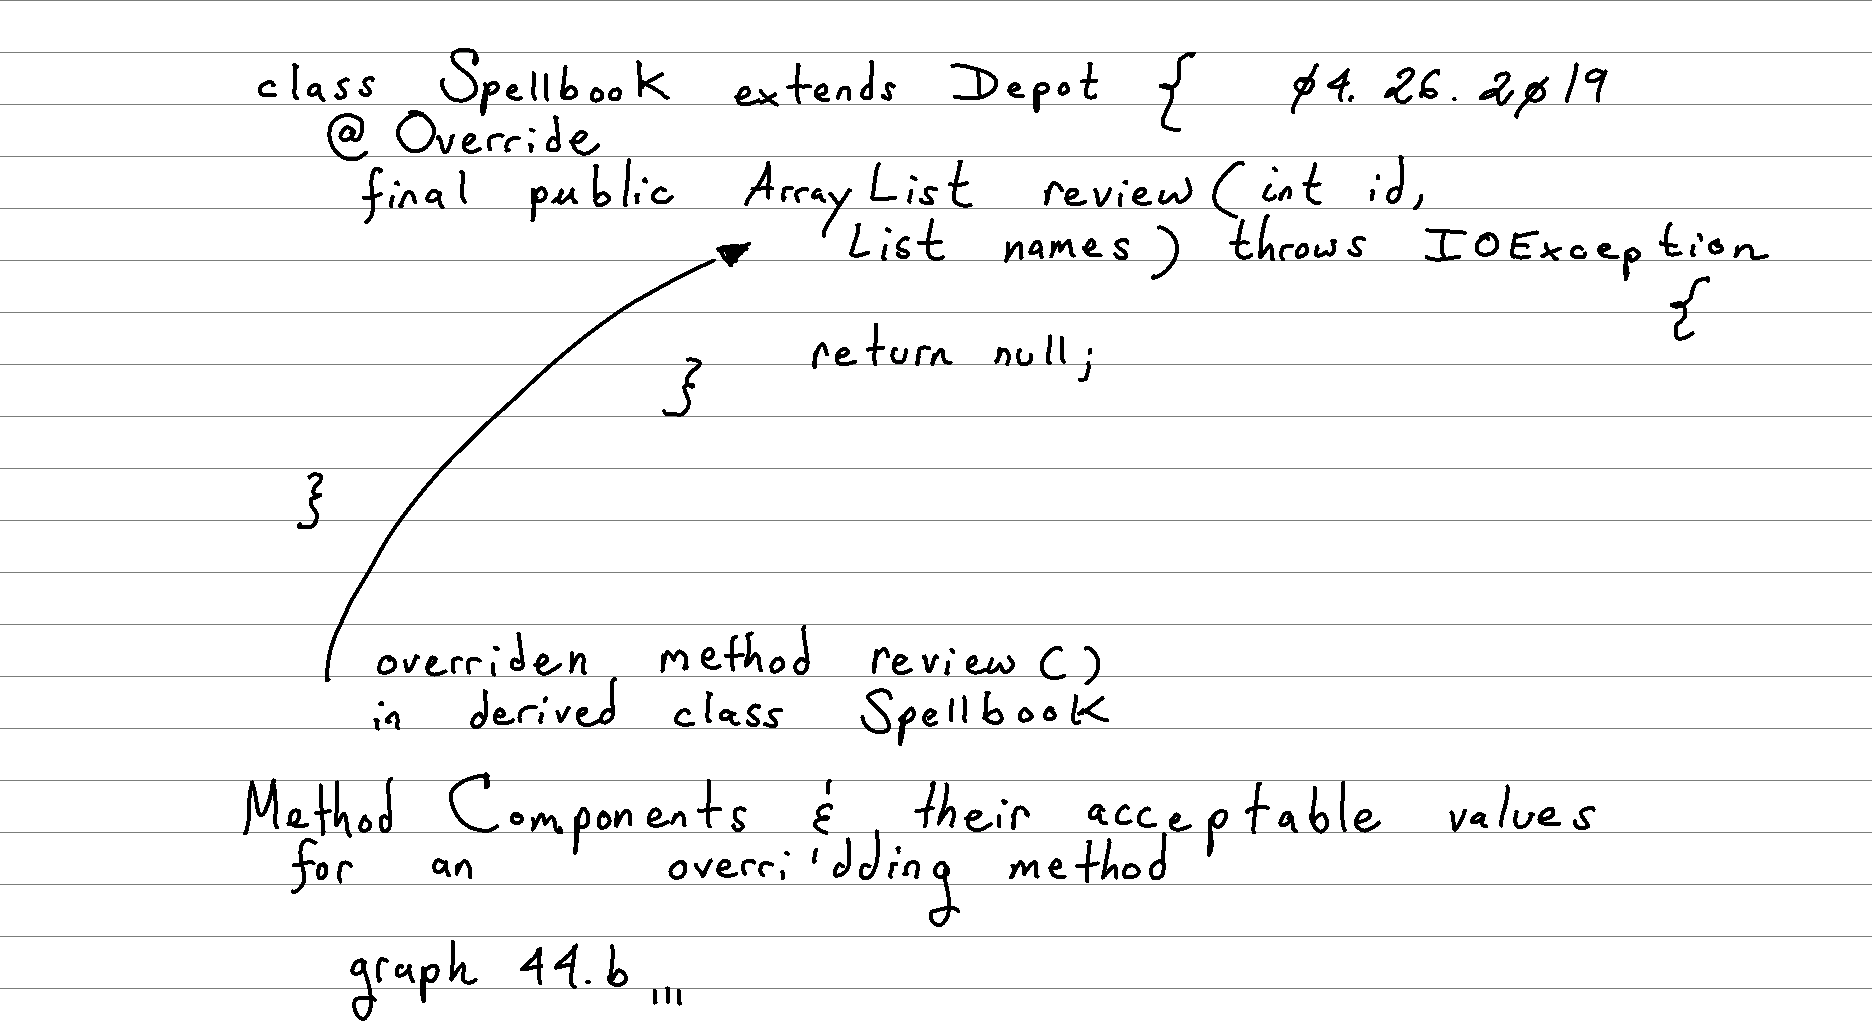 class Spellbook extends Depot { 04.26.2019
@ Override
final public ArrayList review (int id,
List names) throws IOException
{
return null;
}
}
overriden method review ()
in derived class Spellbook
Method Components & their acceptable values
for an overridding method
graph 44.b ...